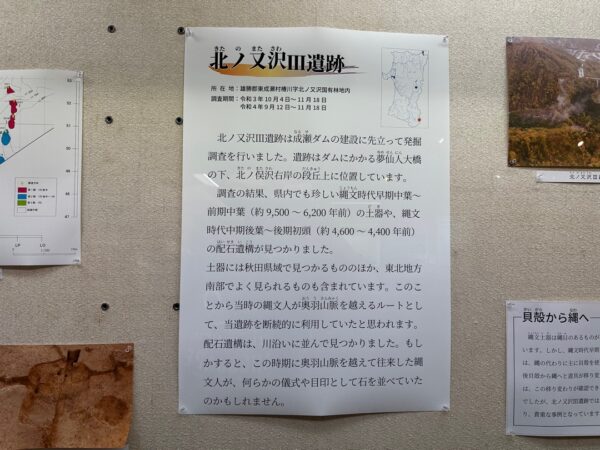 北ノ又沢Ⅲ遺跡
きた の また さわ
所 在 地：雄勝郡東成瀬村椿川字北ノ又沢国有林地内
調査期間：令和3年10月4日～11月18日
令和4年9月12日～11月18日
北ノ又沢Ⅲ遺跡は成瀬ダムの建設に先立って発掘
調査を行いました。遺跡はダムにかかる夢仙人大橋
の下、北ノ俣沢右岸の段丘上に位置しています。
調査の結果、県内でも珍しい縄文時代早期中葉～
前期中葉（約9,500～6,200年前）の土器や、縄文
時代中期後葉～後期初頭（約4,600～4,400年前）
の配石遺構が見つかりました。
土器には秋田県域で見つかるもののほか、東北地方
南部でよく見られるものも含まれています。このこ
とから当時の縄文人が奥羽山脈を越えるルートとし
て、当遺跡を断続的に利用していたと思われます。
配石遺構は、川沿いに並んで見つかりました。もし
かすると、この時期に奥羽山脈を越えて往来した縄
文人が、何らかの儀式や目印として石を並べていた
のかもしれません。
北ノ又沢Ⅲ
貝殻から縄へ
縄文土器は縄目のあるものが
います。しかし、縄文時代早期
は、縄の代わりに主に貝殻を使
後目殻から縄へと道具が移り変
は、この移り変わりが確認でき
でしたが、北ノ又沢Ⅲ遺跡では
り、貴重な事例となっています
LP
LO